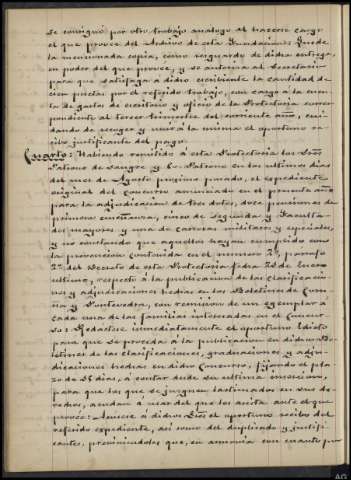 se consignó por otro trabajo analogo al hacerse cargo
el que provee del Archivo de esta Fundación: Quede
la mencionada copia, como resguardo de dicha entrega,
en poder del que provee, y se autoriza al Secretario
para que satisfaga a dicho escribiente la cantidad de
cien pesetas por el referido trabajo, con cargo a la cuen-
ta de gastos de escritorio y oficio de la Protectoria corres-
pondiente al tercer trimestre del corriente año, cui-
dando de recoger y unir a la misma el oportuno re-
cibo justificante del pago.
Cuarto: Habiendo remitido a esta Protectoria los Sres
Patrono de Sangre y Co-Patronos en los ultimos dias
del mes de Agosto proximo pasado, el expediente
original del Concurso anunciado en el presente año
para la adjudicacion de tres dotes, doce pensiones de
primera enseñanza, cinco de Segunda y Faculta-
des mayores y una de carreras militares y especiales,
y no constando que aquellos hayan cumplido con
la prevencion contenida en el numero 2º, parrafo
2º, del Decreto de esta Protectoria fecha 20 de Enero
ultimo, respecto a la publicacion de las clasificacio-
nes y adjudicaciones hechas en los Boletines de Coru-
ña y Pontevedra, con remision de un ejemplar a
cada una de las familias interesadas en el Concur-
so: Redáctese inmediatamente el oportuno Edicto
para que se proceda a la publicacion en dichos Bo-
letines de las clasificaciones, graduaciones y adju-
dicaciones hechas en dicho Concurso, fijando el pla-
zo de 25 dias, a contar desde su ultima insercion,
para que los que se juzguen lastimados en sus dere-
chos, acudan a usar del que les asista ante el que
provee: Acusese á dichos Sres el oportuno recibo del
referido expediente, asi como del duplicado y justifi-
cantes, previniendoles que, en armonia con cuanto pre-